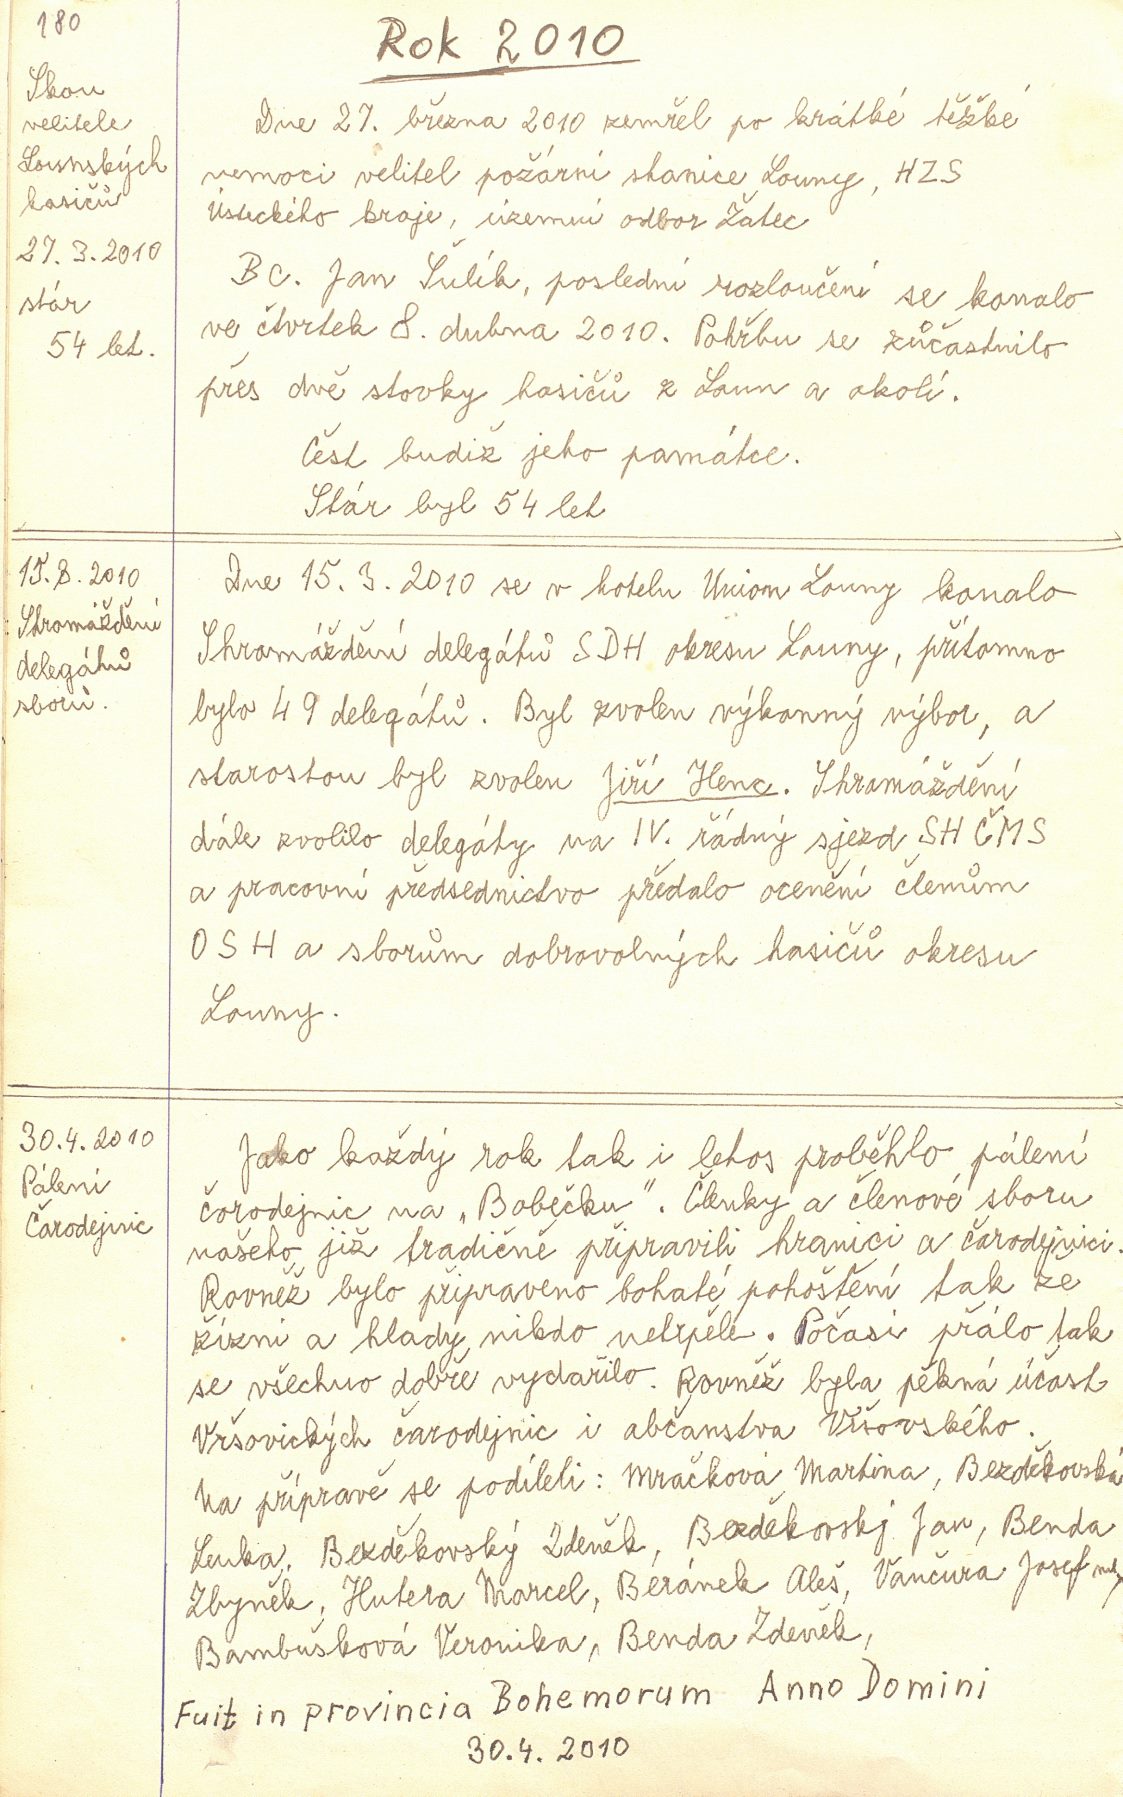 180
Rok 2010
Skon
velitele
Lounských
hasičů
27. 3. 2010
stár
54 let.
Dne 27. března 2010 zemřel po krátké těžké
nemoci velitel požární stanice Louny, HZS
Ústeckého kraje, územní odbor Žatec
Bc. Jan Šulík, poslední rozloučení se konalo
ve čtvrtek 8. dubna 2010. Pohřbu se zůčastnilo
přes dvě stovky hasičů z Loun a okolí.
Čest budiž jeho památce.
Stár byl 54 let
15.3.2010
Shromáždění
delegátů
sborů.
Dne 15. 3. 2010 se v hotelu Union Louny konalo
Shromáždění delegátů SDH okresu Louny, přítomno
bylo 49 delegátů. Byl zvolen výkonný výbor, a
starostou byl zvolen Jiří Henc. Shromáždění
dále zvolilo delegáty na IV. řádný sjezd SH ČMS
a pracovní předsednictvo předalo ocenění členům
OSH a sborům dobrovolných hasičů okresu
Louny.
30.4.2010
Pálení
Čarodejnic
Jako každý rok tak i letos proběhlo pálení
čarodejnic na „Bobečku“. Členky a členové sboru
našeho již tradičně připravili hranici a čarodejnici.
Rovněž bylo připraveno bohaté pohoštění tak že
žízni a hlady nikdo netrpěle. Počasi přálo tak
se všechno dobře vydařilo. Rovněž byla pěkná účast
Vršovických čarodejnic i občanstva Vršovského.
Na přípravě se podíleli: Mračková Martina, Bezděkovská
Lenka, Bezděkovský Zdeněk, Bezděkovský Jan, Benda
Zbyněk, Hutera Marcel, Beránek Aleš, Vančura Josef ml,
Bambušková Veronika, Benda Zdeněk,
Fuit in provincia Bohemorum Anno Domini
30.4. 2010